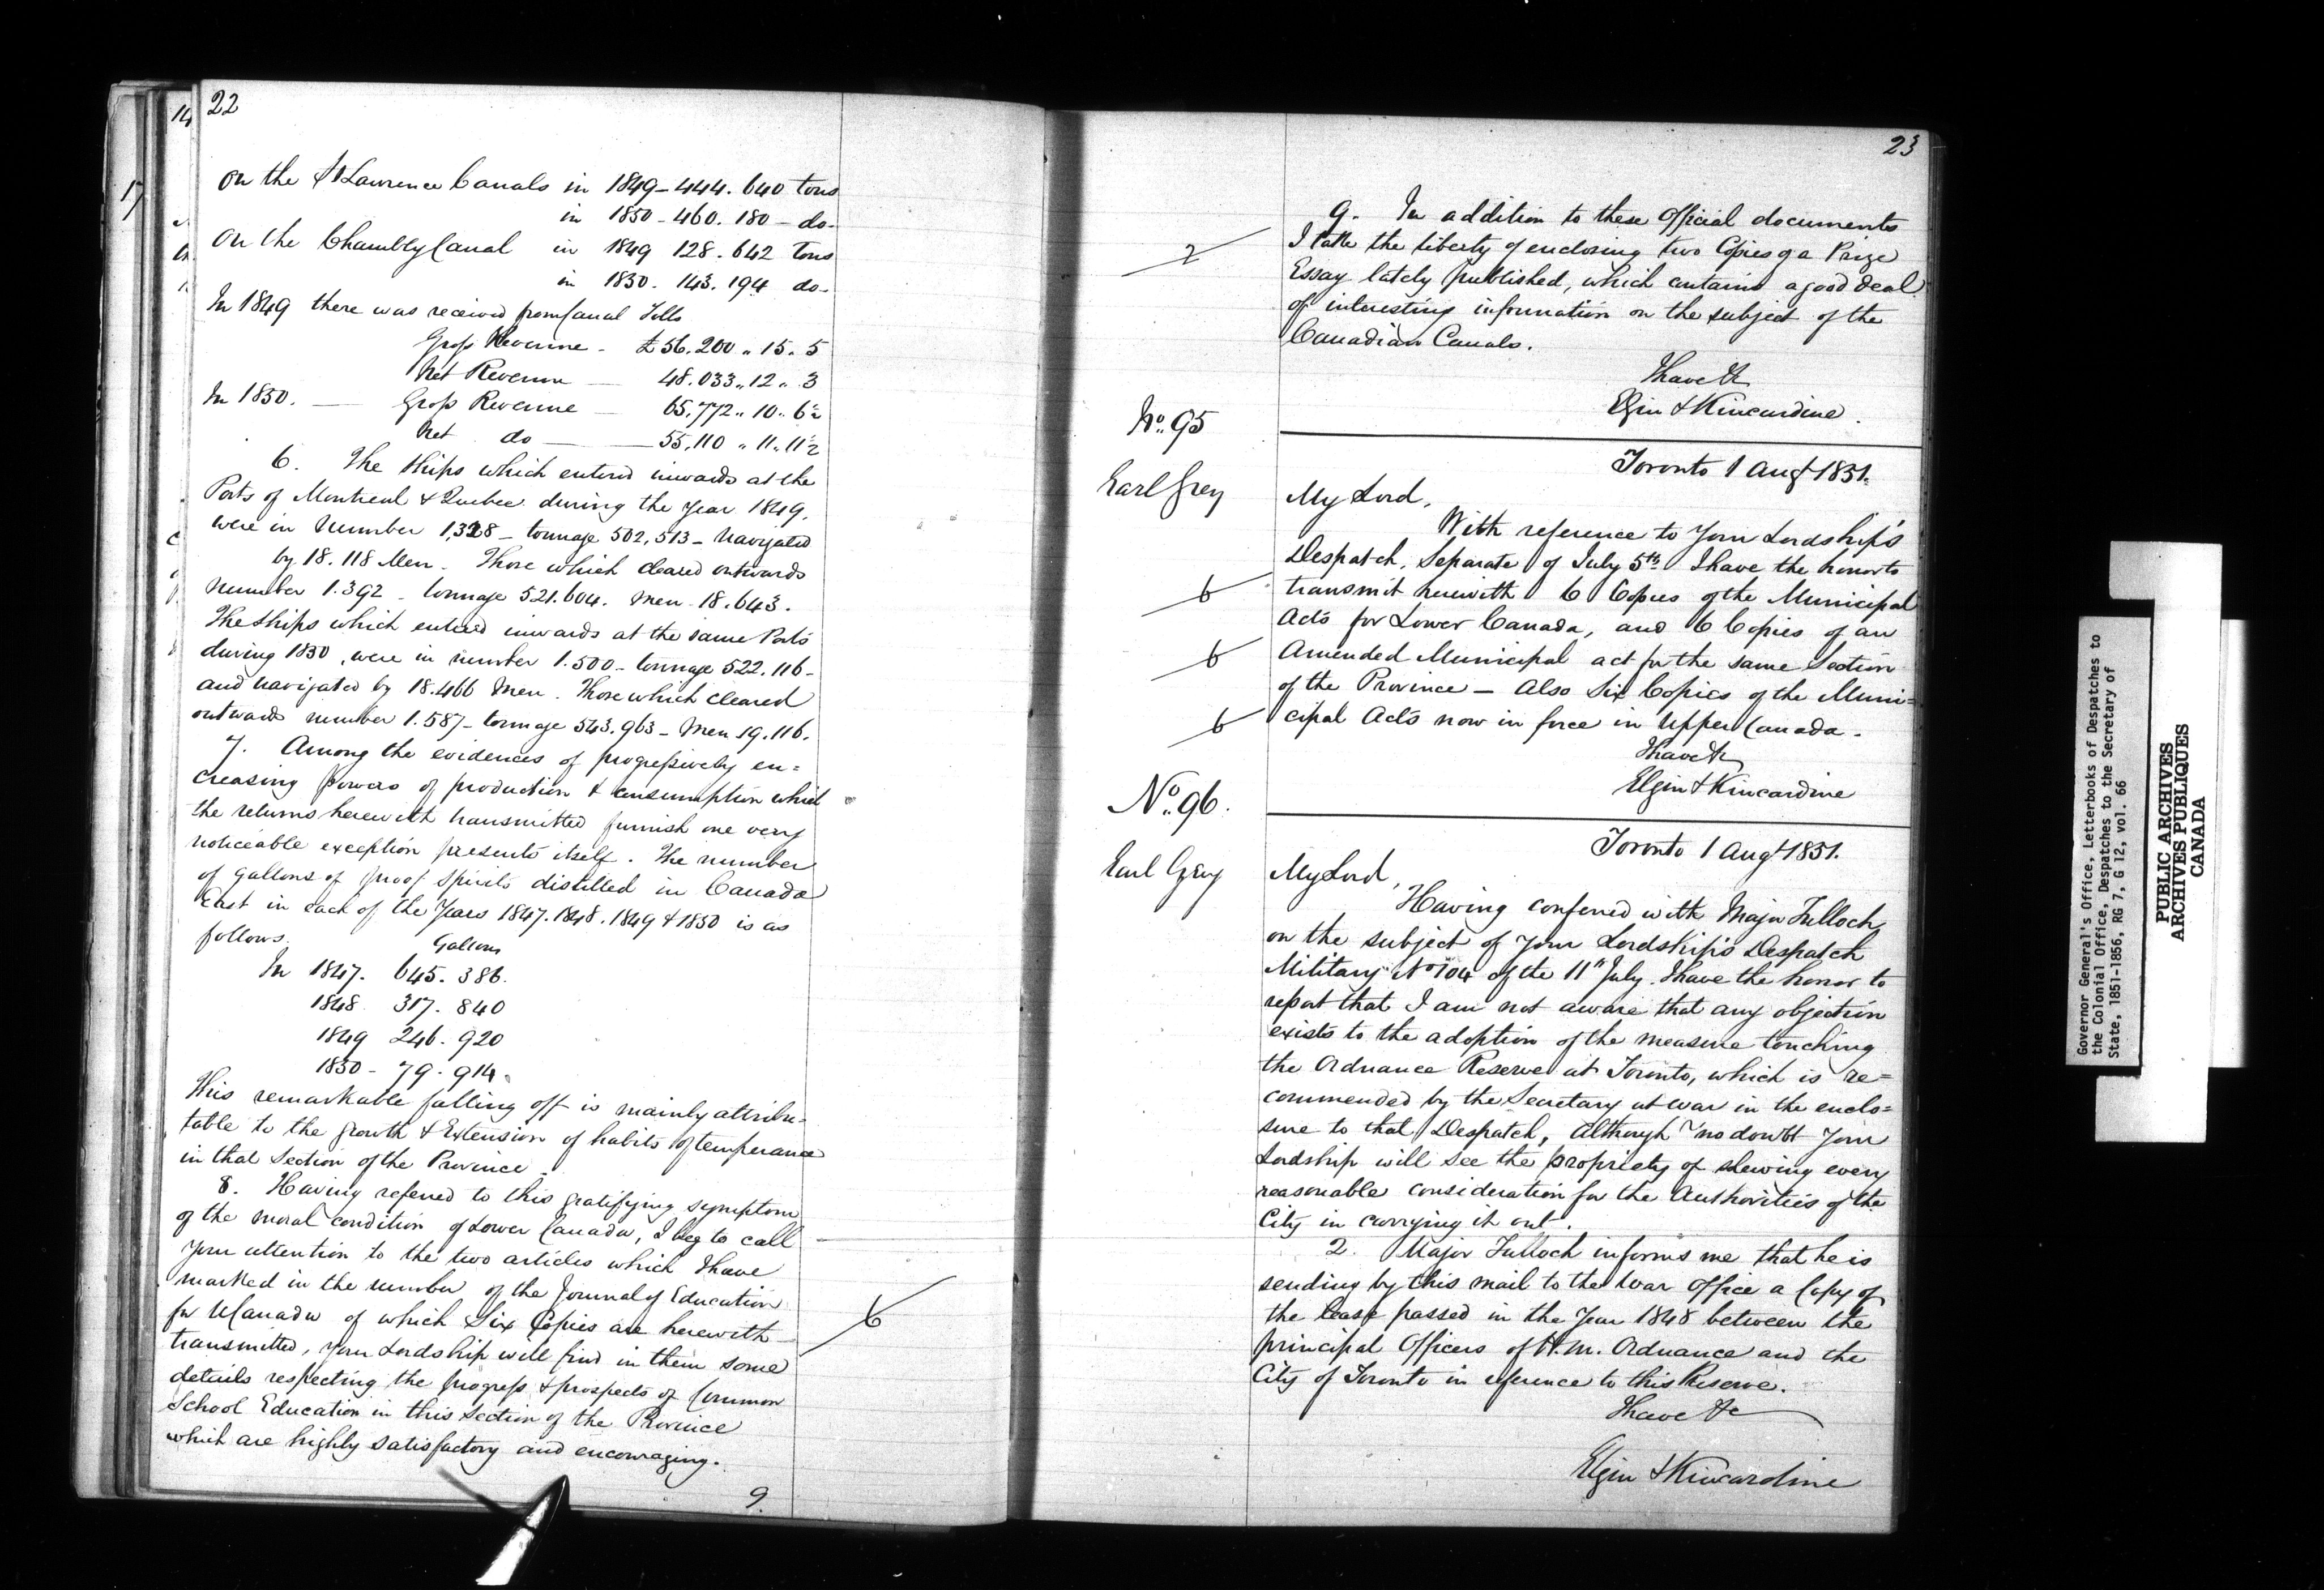 14
17
22
On the St Lawrence Canals in 1849 - 444.640 tons
in 1850 - 460.180 - do -
On the Chambly Canal in 1849 128.642 tons
in 1850. 143.194 do -
In 1849 there was received from Canal Tolls
Gross Revenue - £56.200 „ 15 „ 5
Net Revenue — 48.033 „ 12 „ 3
In 1850. — Gross Revenue — 65,772 „ 10 „ 6½
Net do — 55,110 „ 11 „ 11½
6. The Ships which entered inwards at the
Ports of Montreal & Quebec during the Year 1849,
were in Number 1,328 - tonnage 502,513 - navigated
by 18.118 Men. Those which cleared outwards
number 1.392 - tonnage 521.604. Men 18.643.
The Ships which entered inwards at the same Ports
during 1850, were in number 1.500 - tonnage 522.116 -
and navigated by 18.466 Men. Those which cleared
outwards number 1.587 - tonnage 543.963 - Men 19.116.
7. Among the evidences of progressively en=
creasing powers of production & consumption which
the returns herewith transmitted furnish one very
noticeable exception presents itself. The number
of gallons of proof spirits distilled in Canada
East in each of the Years 1847. 1848. 1849 & 1850 is as
follows.
Gallons
In 1847. 645.386.
1848 317.840
1849 246.920
1850 - 79.914.
This remarkable falling off is mainly attribu=
table to the growth & Extension of habits of temperance
in that Section of the Province.
8. Having referred to this gratifying symptom
of the moral condition of Lower Canada, I beg to call
Your attention to the two articles which I have
marked in the number of the Journal of Education
for U Canada of which Six Copies are herewith
6
transmitted, Your Lordship will find in them some
details respecting the progress & prospects of Common
School Education in this Section of the Province
which are highly satisfactory and encouraging.
9.
23
9. In addition to these Official documents
2
I take the liberty of enclosing two Copies of a Prize
Essay lately published, which contains a good deal
of interesting information on the subject of the
Canadian Canals.
I have &c
Elgin & Kincardine.
No. 95
Toronto 1 Augt 1851.
Earl Grey
My Lord,
With reference to Your Lordship's
Despatch, Separate of July 5th I have the honor to
6
transmit herewith 6 Copies of the Municipal
Acts for Lower Canada, and 6 Copies of an
6
Amended Municipal act for the same Section
of the Province - Also Six Copies of the Muni=
6
cipal Acts now in force in Upper Canada.
I have &c
Elgin & Kincardine
No. 96.
Toronto 1 Augt 1851.
Earl Grey
My Lord,
Having conferred with Major Tulloch
on the subject of Your Lordship's Despatch
Military No 104 of the 11th July. I have the honor to
report that I am not aware that any objection
exists to the adoption of the measure touching
the Ordnance Reserve at Toronto, which is re=
commended by the Secretary at War in the enclo=
sure to that Despatch, although no doubt Your
Lordship will see the propriety of shewing every
reasonable consideration for the Authorities of the
City in carrying it out.
2. Major Tulloch informs me that he is
sending by this mail to the War Office a Copy of
the lease passed in the Year 1848 between the
principal Officers of H.M. Ordnance and the
City of Toronto in reference to this Reserve.
I have &c
Elgin & Kincardine
Governor General's Office, Letterbooks of Despatches to
the Colonial Office, Despatches to the Secretary of
State, 1851-1856, RG 7, G 12, vol. 66
PUBLIC ARCHIVES
ARCHIVES PUBLIQUES
CANADA